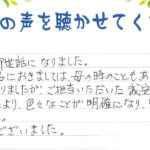 の声を聴かせてく
御世話になりました。
におきましては、母の時のこともあ
りましたが、ご担当いただいた
より、色々なことが明確になり、
ございました。